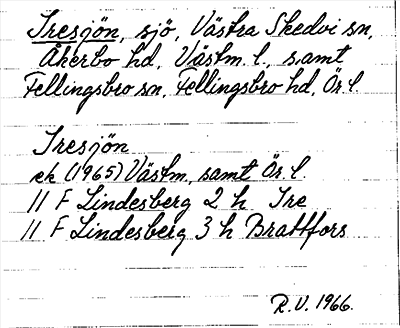 Iresjön, sjö, Västra Skedvi sn,
Åkerbo hd, Västm. l., samt
Fellingsbro sn, Fellingsbro hd, Ör. l.
Iresjön
ek (1965) Västm, samt Ör. l.
11 F Lindesberg 2 h Ire
11 F Lindesberg 3 h Brattfors
R.V. 1966.